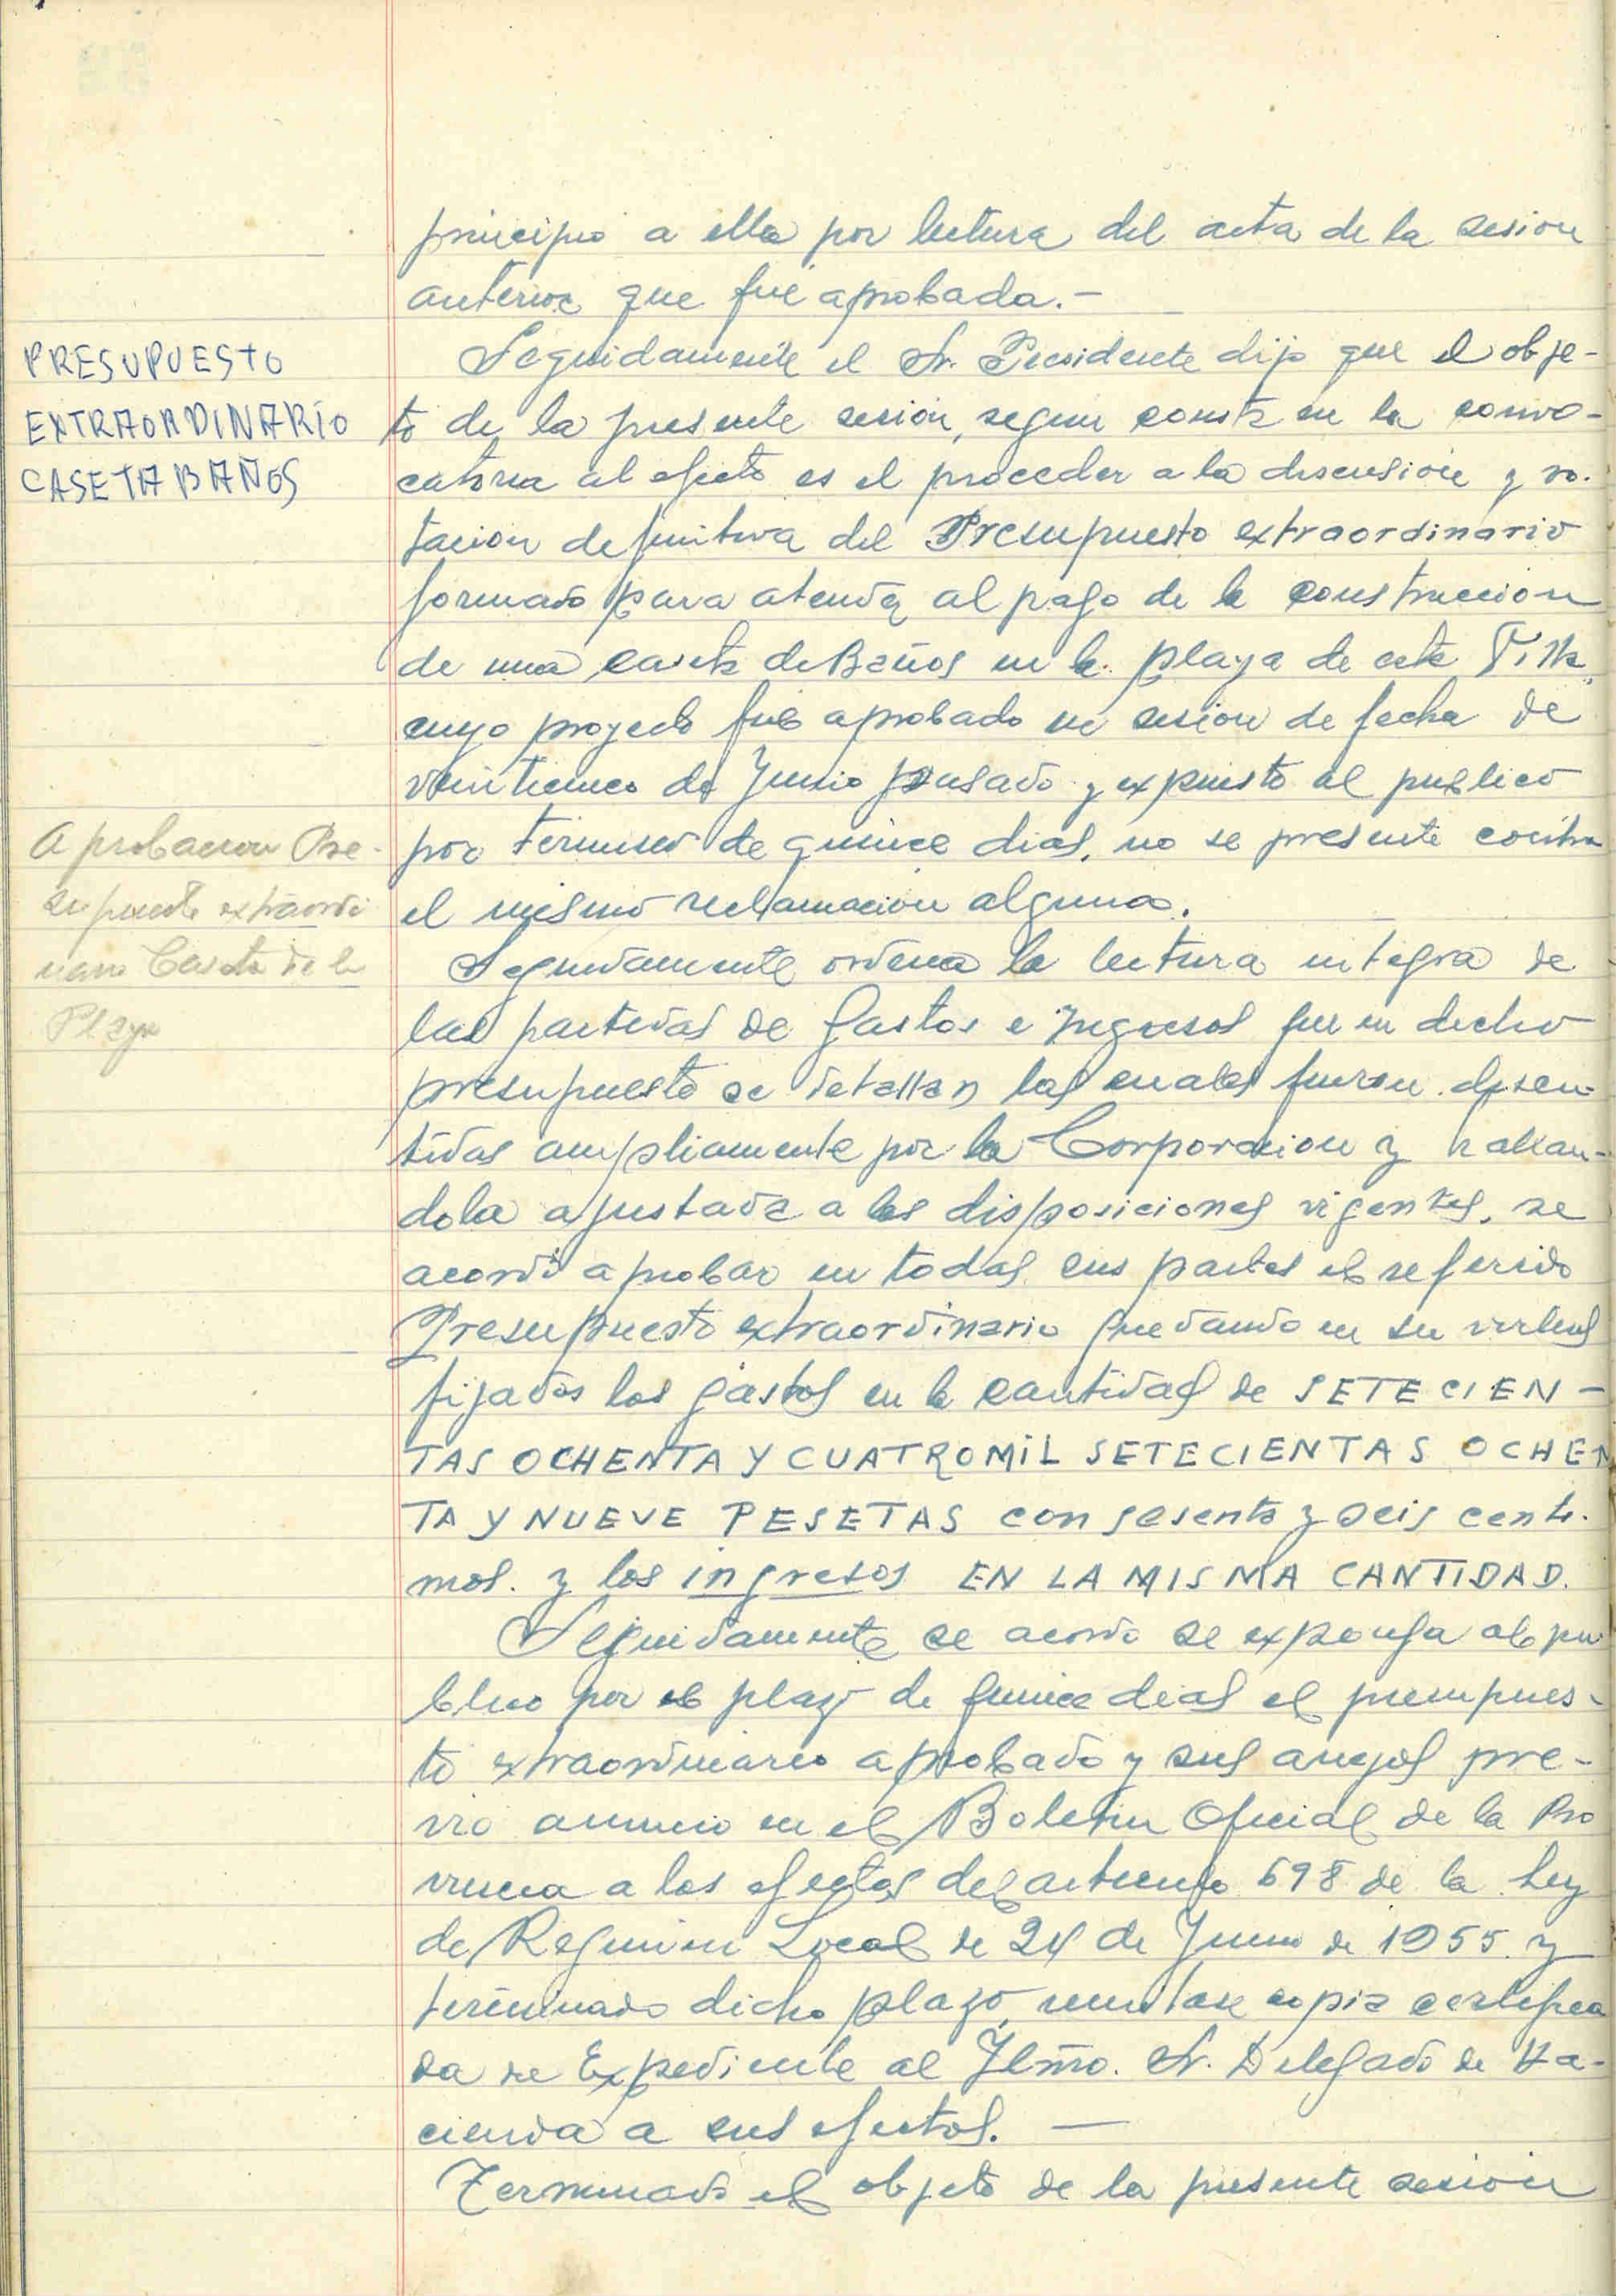 principio a ella por lectura del acta de la sesion
anterior que fué aprobada.-
PRESUPUESTO
EXTRAORDINARIO
CASETA BAÑOS
Seguidamente el Sr. Presidente dijo que el obje-
to de la presente sesión, segun consta en la convo-
catoria al efecto es el proceder a la discusión y vo-
tacion definitiva del Presupuesto extraordinario
formado para atender al pago de la construccion
de una caseta de Baños en la playa de esta Villa,
cuyo proyecto fué aprobado en sesion de fecha de
veinticinco de Junio pasado y expuesto al publico
por termino de quince dias, no se presente contra
el mismo reclamacion alguna.
Aprobacion Pre-
supuesto extraordi
nario Caseta de la
Playa
Seguidamente ordena la lectura integra de
las partidas de Gastos e Ingresos que en dicho
presupuesto se detallan las cuales fueron discu-
tidas ampliamente por la Corporacion y hallan-
dola ajustada a las disposiciones vigentes, se
acordó aprobar en todas sus partes el referido
Presupuesto extraordinario quedando en su virtud
fijados los gastos en la cantidad de SETECIEN-
TAS OCHENTA Y CUATRO MIL SETECIENTAS OCHEN
TA Y NUEVE PESETAS con sesenta y seis centi-
mos. y los ingresos EN LA MISMA CANTIDAD.
Seguidamente se acordo se exponga al pu
blico por el plazo de quince dias el presupues-
to extraordinario aprobado y sus anejos pre-
vio anuncio en el Boletin Oficial de la Pro
vincia a los efectos del articulo 698 de la Ley
de Regimen Local de 24 de Junio de 1955 y
terminado dicho plazo, remitase copia certifica
da de Expediente al Ilmo. Sr. Delegado de Ha-
cienda a sus efectos. —
Terminado el objeto de la presente sesion